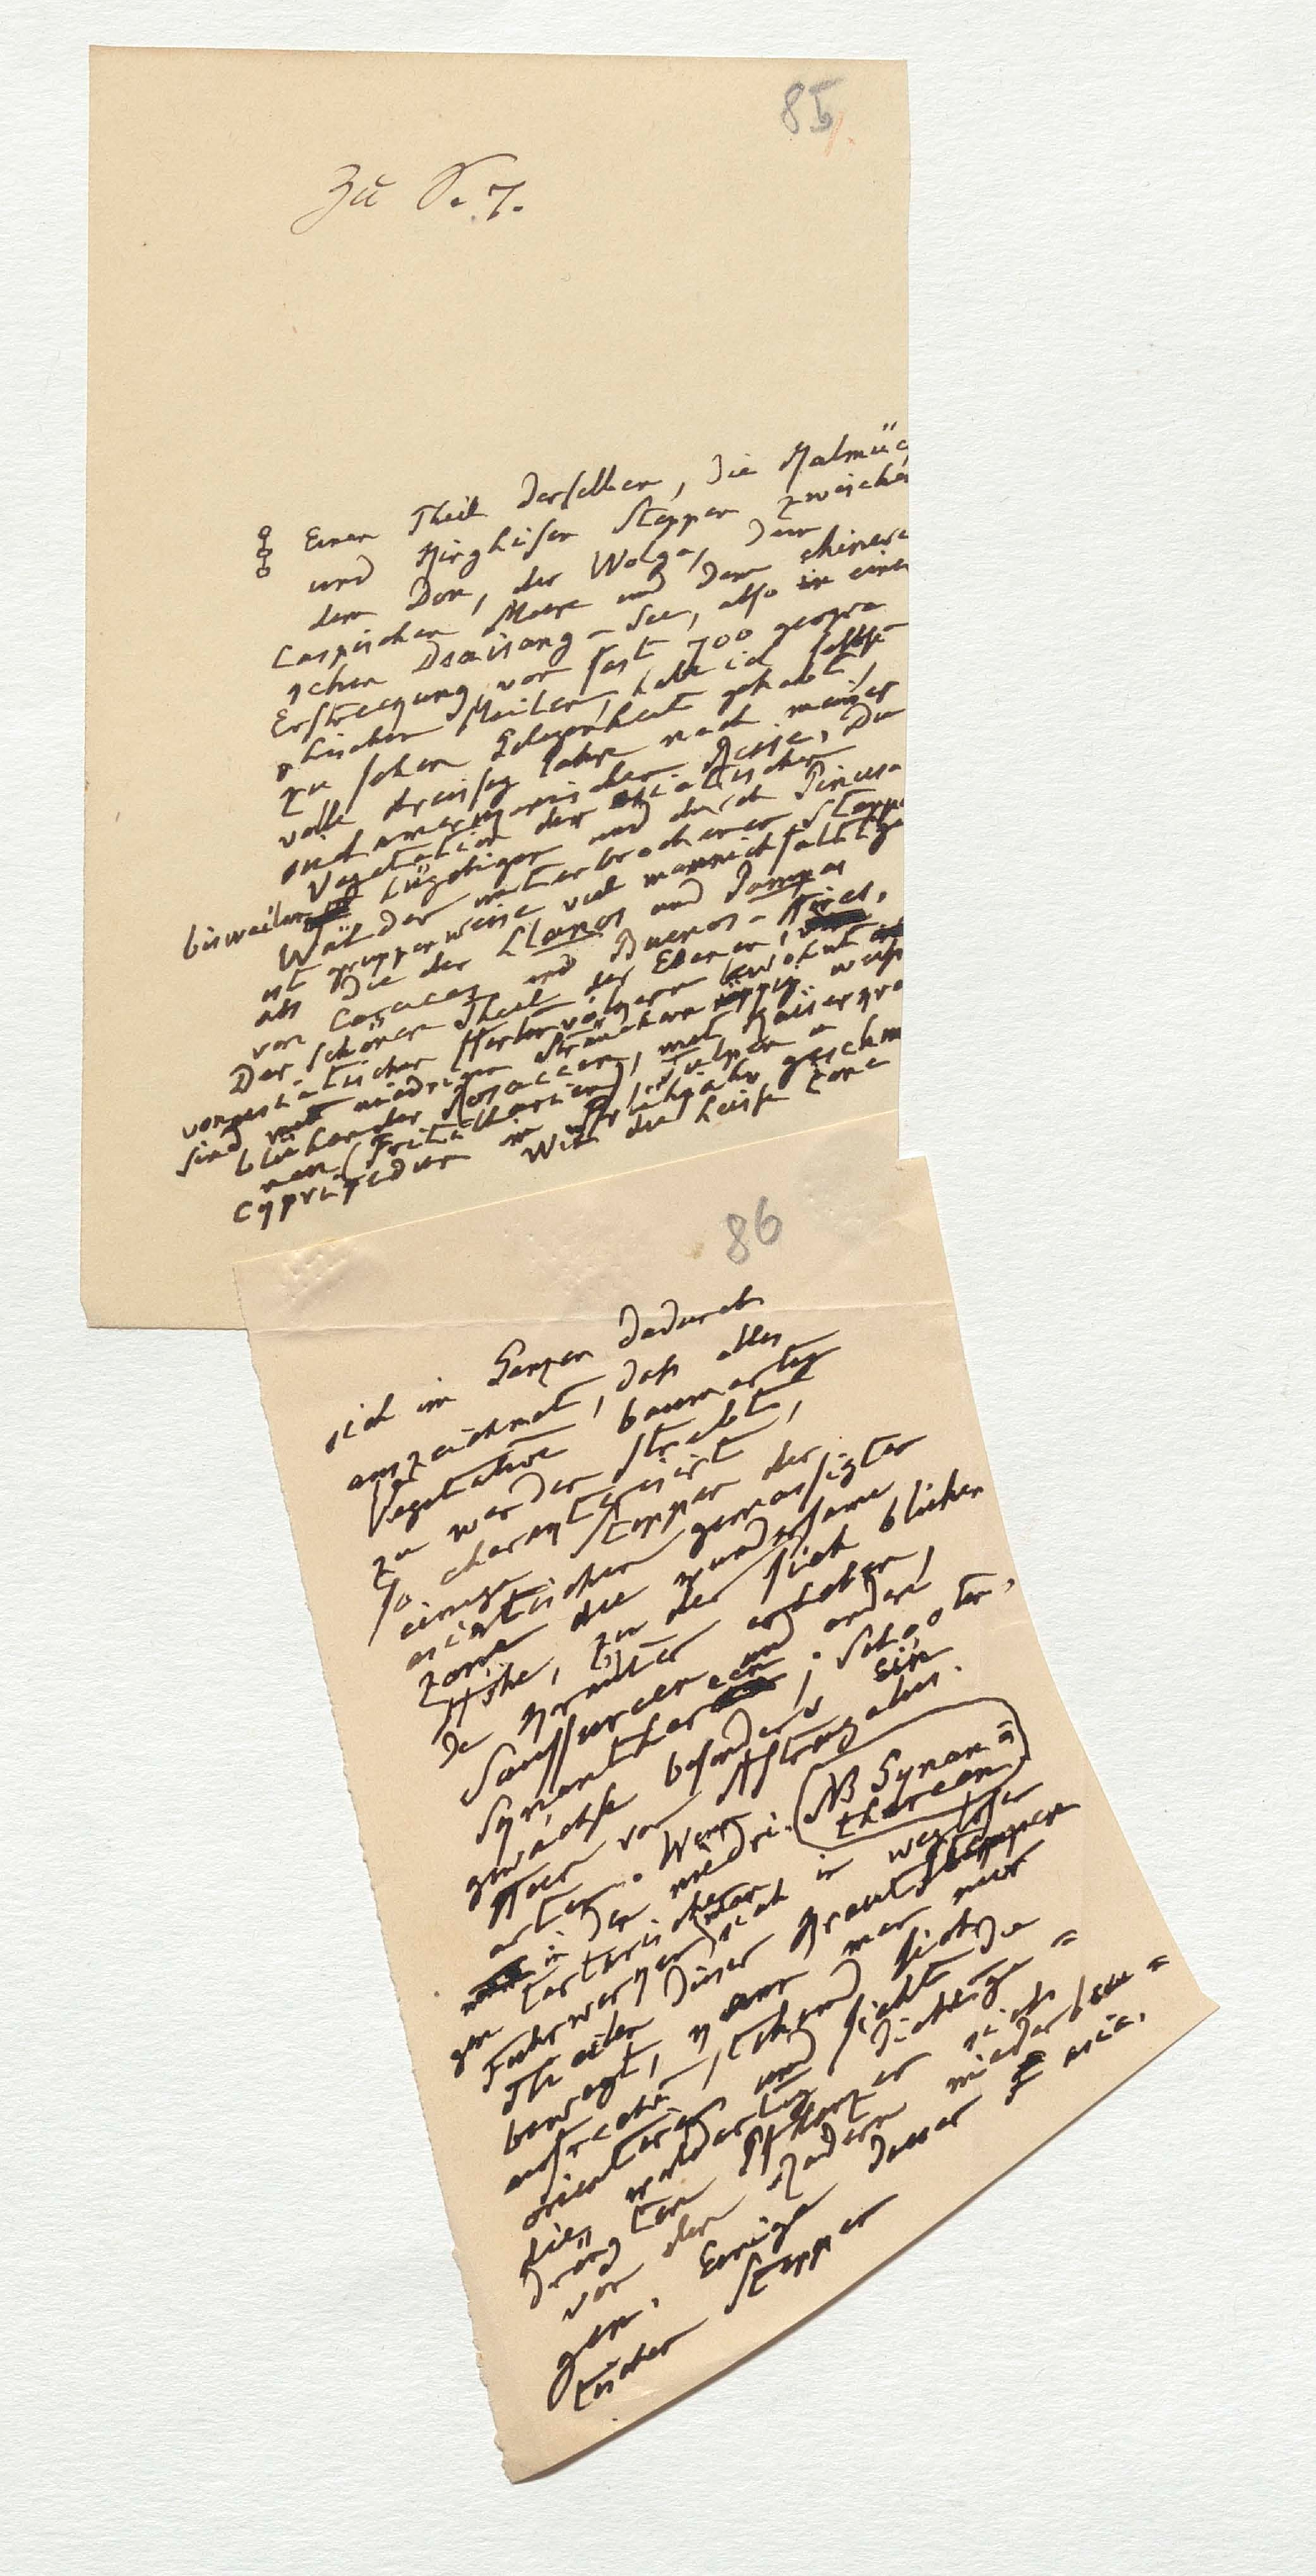 85
Zu S. 7.
Einen Theil derselben, die Kalmüc
und Kirghisen Steppen zwischen
dem Don, der Wolga, dem
Caspischen Meere und dem chinesi
schen Dsaisang-See, also in einer
Erstreckung von fast 700 geogra
phischen Meilen, habe ich selbst
zu sehen Gelegenheit gehabt,
volle dreisig Jahre nach meiner
südamerikanischen Reise. Die
Vegetation der asiatischen
bisweilen hügeligen und durch Pinus-
Wälder unterbrochenen Steppe
ist gruppenweise viel mannichfaltige
als die der Llanos und Pampas
von Caracas und Buenos-Aires.
Der schönere Theil der Ebenen, von
asiatischen Hirtenvölkern bewohnt
sind mit niedrigen Sträuchern üppig weiss
blühender Rosaceen, mit Kaiserkro
nen (Fritillarien), Tulpen u
Cypripedien im Frühjahr geschm
Wie die heisse Zone
86
sich im Ganzen dadurch
auszeichnet, dass alles
Vegetative baumartig
zu werden strebt,
so charakterisirt
einige Steppen der
asiatischen gemässigten
Zone die wundersame
Höhe, zu der sich blühen
de Kräuter erheben,
Saussureen und andere
Synanthereen; Schoten-
gewächse besonders ein
Heer von Astragalus-
arten. Wenn
(NB Synan=
thereen)
in den niedri
gen tartarischen
Fuhrwerken sich in weglosen
Theilen dieser Krautsteppen
bewegt, kann man nur
aufrecht stehend sich
orientiren und sieht die
waldartig dichtge=
drängten Pflanzen sich
vor den Rädern niederbeu=
gen. Einige dieser asia.
tischen Steppen